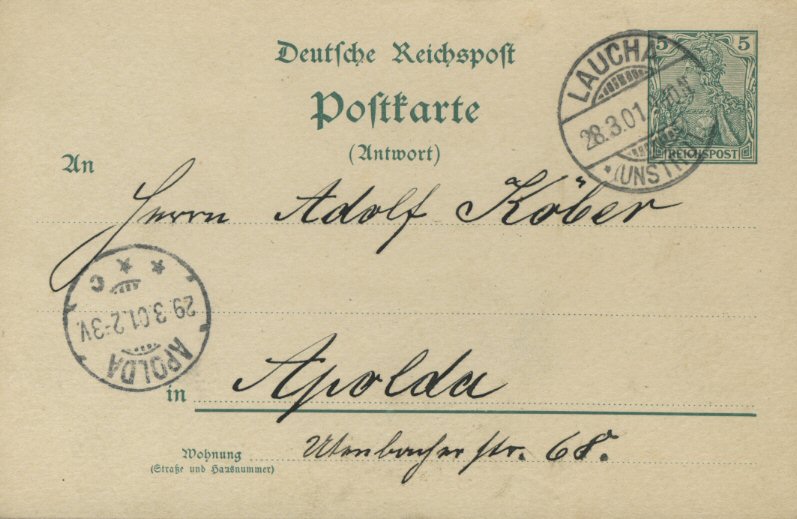 Deutsche Reichspost
Postkarte
(Antwort)
5 5
REICHSPOST
LAUCHA
28.3.01.
*(UNSTRUT)
An
Herrn Adolf Köber
* *
C
29.3.01.2-3V.
APOLDA
in Apolda
Wohnung
(Straße und Hausnummer)
Utenbacher str. 68.